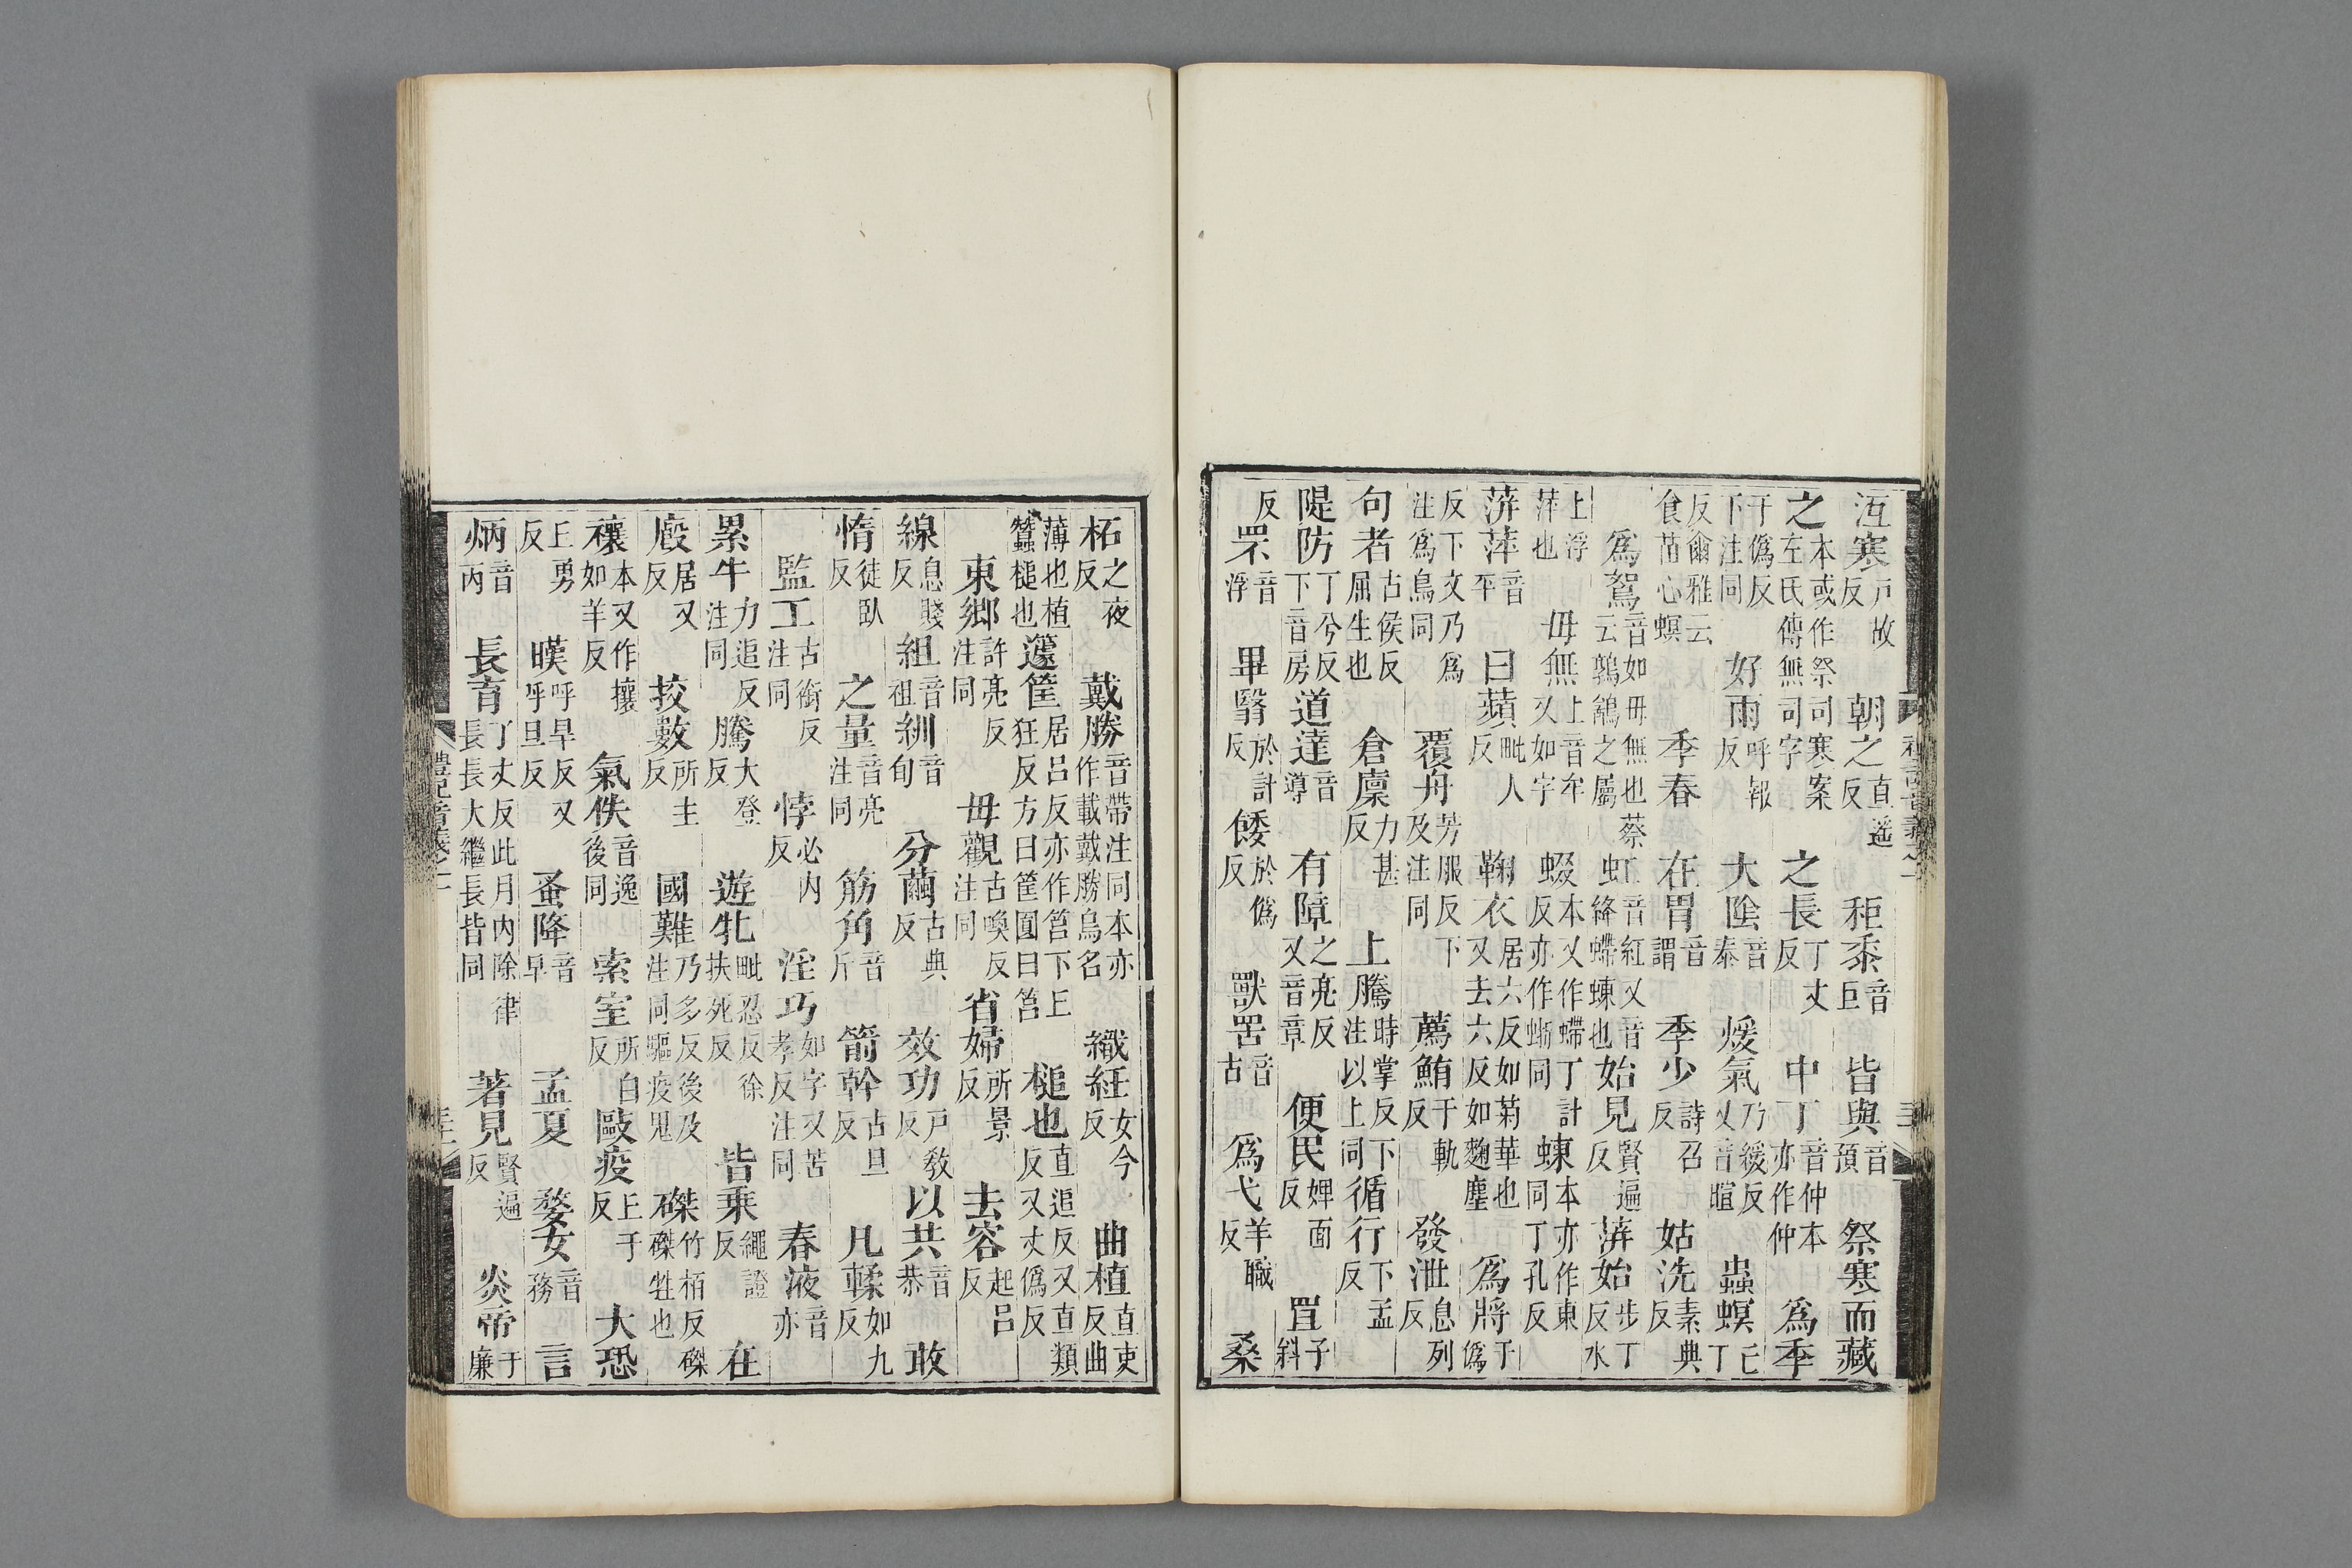 沍寒戶故反朝之直遥反秬黍音巨皆與音預祭寒而藏
之本或作祭司寒案左氏傳無司字之長丁丈反中丁音仲本亦作仲爲季
于僞反下注同好雨呼報反大陰音泰煖氣乃緩反又音暄蟲螟亡丁
反爾雅云食苗心螟季春在胃音謂季少詩召反姑洗素典反
爲鴽音如毋無也蔡云鶉鵪之屬虹音紅又音絳螮蝀也始見賢遍反蓱始步丁反水
上浮萍也毋無上音牟又如字蝃本又作螮丁計反亦作蜥同蝀本亦作東同丁孔反
蓱萍音平曰蘋毗人反鞠衣居六反如菊華也又去六反如麴塵爲將于僞
反下文乃爲注爲鳥同覆舟芳服反下及注同薦鮪于軌反發泄息列反
句者古侯反屈生也倉廩力甚反上騰時掌反下注以上同循行下孟反
隄防丁兮反下音房道達音導有障之亮反又音章便民婢面反罝子斜
反罘音浮畢翳於計反餧於僞反獸罟音古爲弋羊職反桑
柘之夜反戴勝音帶注同本亦作載戴勝鳥名織紝女今反曲植直吏反曲
薄也植蠶槌也籧筐居呂反亦作筥下丘狂反方曰筐圓曰筥槌也直追反又直類反又丈僞反
東鄉許亮反注同毋觀古喚反注同省婦所景反去容起呂反
線息賤反組音祖紃音旬分繭古典反效功戶敎反以共音恭敢
惰徒臥反之量音亮注同筋角音斤箭幹古旦反凡輮如九反
監工古銜反注同悖必內反淫巧如字又苦孝反注同春液音亦
累牛力追反注同騰大登反遊牝毗忍反徐扶死反皆乘繩證反在
廏居又反挍數所主反國難乃多反後及注同驅疫鬼磔竹栢反磔磔牲也
禳本又作攘如羊反氣佚音逸後同索室所白反敺疫丘于反大恐
丘勇反暵呼旱反又呼旦反蚤降音早孟夏婺女音務言
炳音丙長育丁丈反此月內除律長長大繼長皆同著見賢遍反炎帝于廉
禮記音義之一